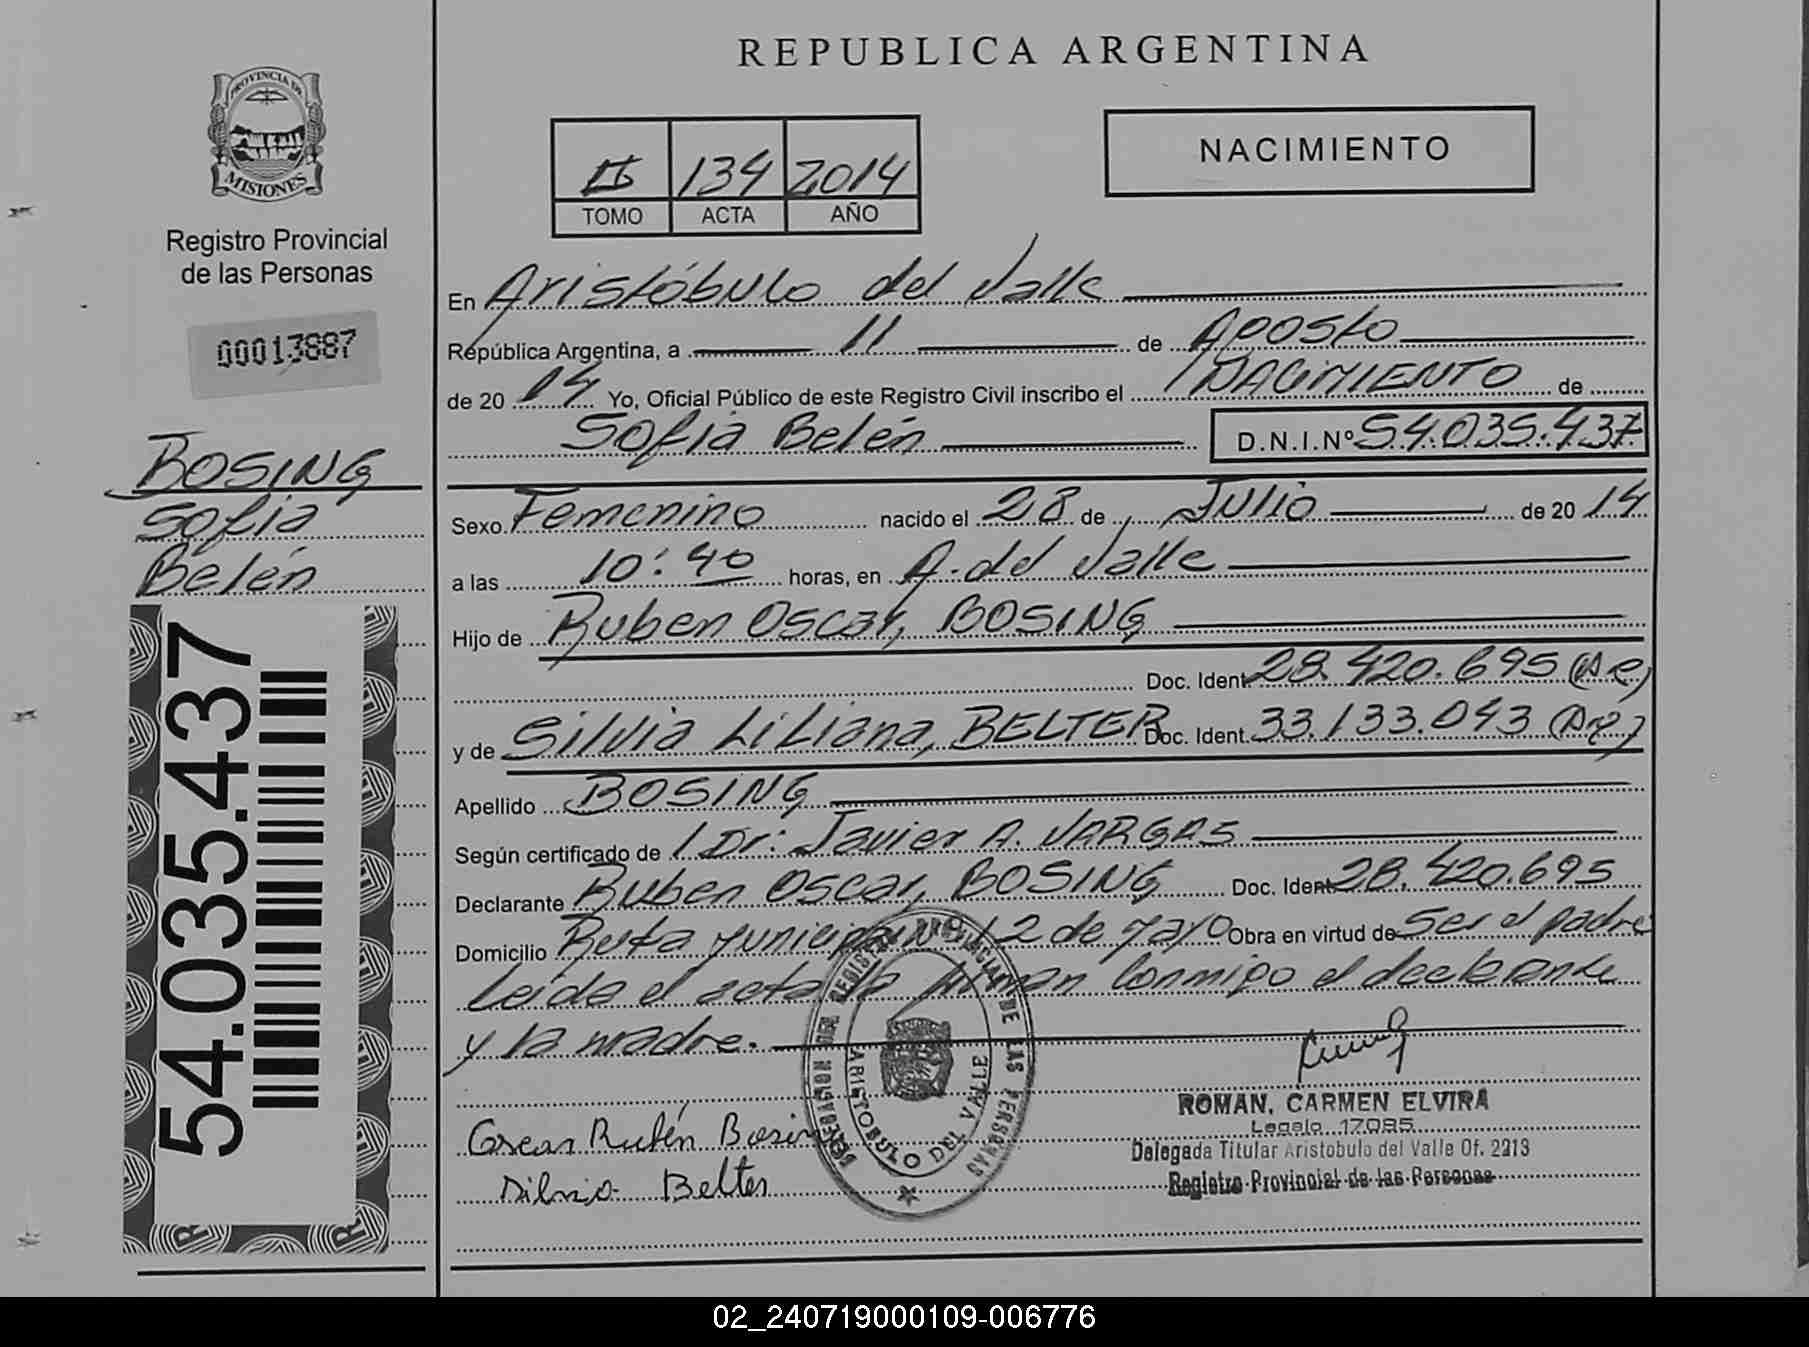 REPUBLICA ARGENTINA
PROVINCIA DE
MISIONES
Registro Provincial
de las Personas
00013887
BOSING
Sofia
Belén
54.035.437
II 134 2014
TOMO ACTA AÑO
NACIMIENTO
En Aristóbulo del Valle
República Argentina, a 11 de Agosto
de 20 14 Yo, Oficial Público de este Registro Civil inscribo el NACIMIENTO de
Sofia Belén D.N.I.Nº 54.035.437
Sexo Femenino nacido el 28 de Julio de 20 14
a las 10:40 horas, en A. del Valle
Hijo de Ruben Oscar, BOSING
Doc. Ident. 28.420.695 (Arg)
y de Silvia Liliana, BELTER Doc. Ident. 33.133.043 (Arg)
Apellido BOSING
Según certificado de Dr: Javier A. VARGAS
Declarante Ruben Oscar, BOSING Doc. Ident. 28.420.695
Domicilio Ruta 2 de Mayo Obra en virtud de ser el padre
Leída el acta la firman conmigo el declarante
y la madre.
Oscar Rubén Bosing
Silvia Belter
REGISTRO PROVINCIAL DE LAS PERSONAS
DELEGACION
ARISTOBULO DEL VALLE
ROMAN, CARMEN ELVIRA
Legajo 17085
Delegada Titular Aristobulo del Valle Of. 2213
Registro Provincial de las Personas
02_240719000109-006776